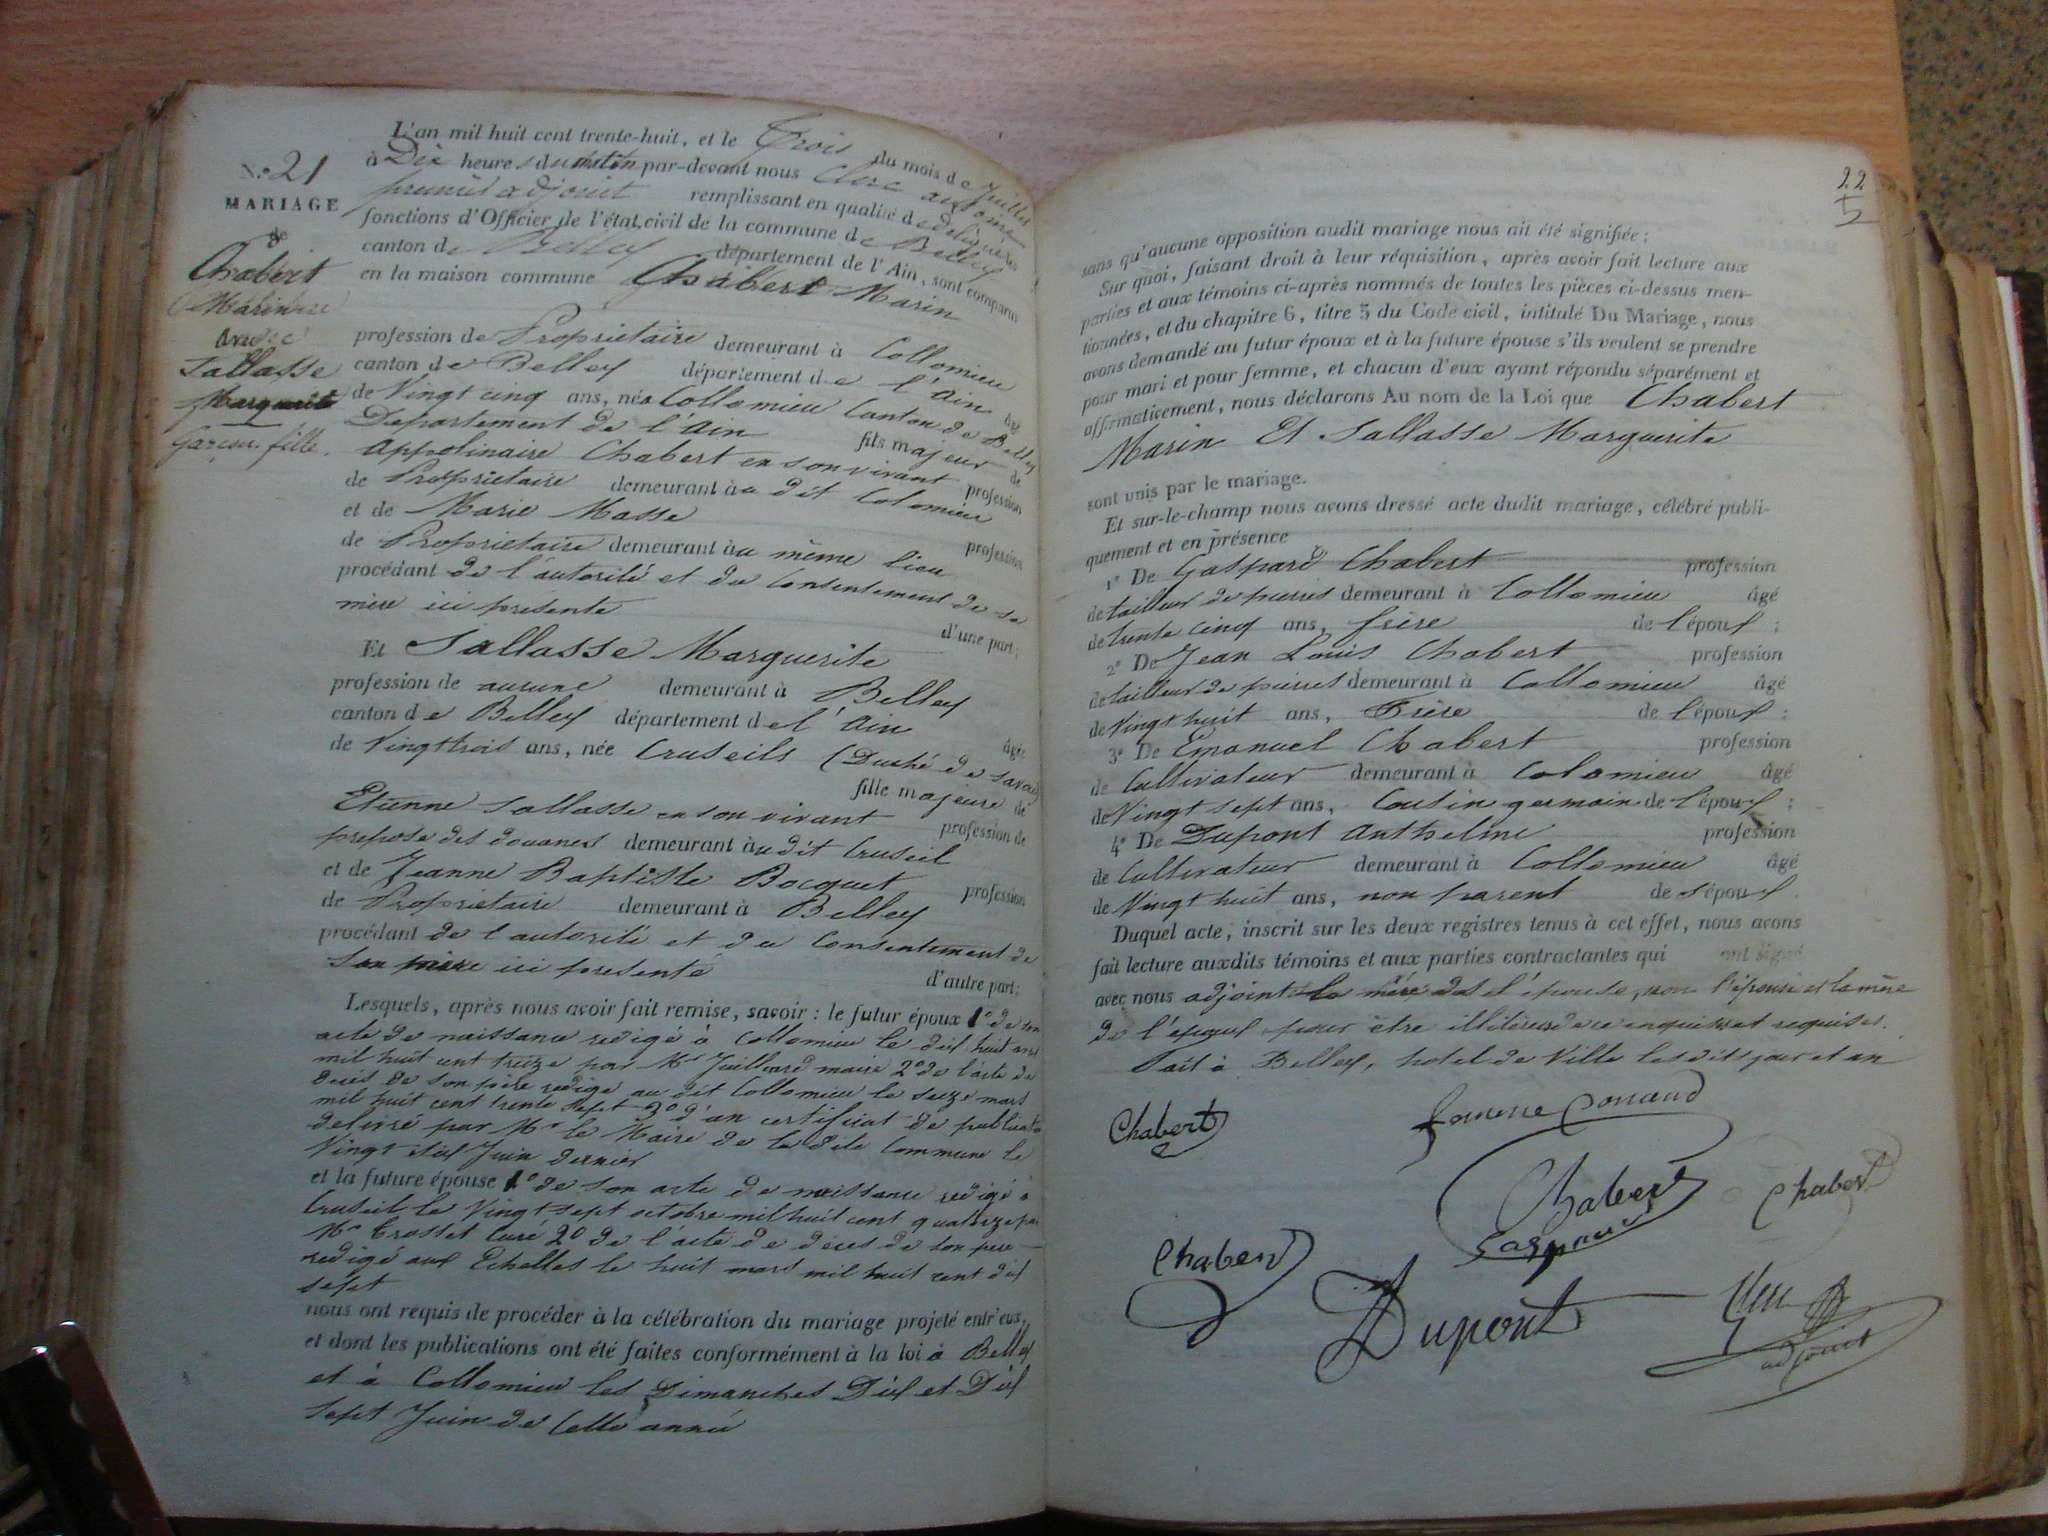 N.º 21
MARIAGE
de
Chabert
Marin
Avec
Sallasse
Marguerite
Garçon. fille.
L'an mil huit cent trente-huit, et le Trois du mois de Juillet
à Dix heures du matin par-devant nous Clerc antoine
premier adjoint remplissant en qualité de délégué les
fonctions d'Officier de l'état civil de la commune de Belley
canton de Belley département de l'Ain, sont comparus
en la maison commune Chabert Marin
profession de Proprietaire demeurant à Collomieu
canton de Belley département de l'Ain âgé
de Vingt cinq ans, né à Collomieu Canton de Belley
Departement de l'Ain fils majeur de
Appolinaire Chabert en son vivant profession
de Proprietaire demeurant àu dit Colomieu
et de Marie Masse profession
de Proprietaire demeurant àu même lieu
procédant de l'autorité et du Consentement de sa
mere ici presente d'une part;
Et Sallasse Marguerite
profession de aucune demeurant à Belley
canton de Belley département de l'Ain âgée
de Vingt trois ans, née Cruseils (Duché de Savoie)
fille majeure de
Etienne Sallasse en son vivant profession de
prepose des douanes demeurant àu dit Cruseil
et de Jeanne Baptiste Bocquet profession
de Proprietaire demeurant à Belley
procédant de l'autorité et du Consentement de
sa mere ici presente d'autre part;
Lesquels, après nous avoir fait remise, savoir: le futur époux 1º de son
acte de naissance redigé à Collomieu le dix huit
mil huit cent treize par Mr Juilliard maire 2º de l'acte de
décés de son père redige au dit Collomieu le seize mars
mil huit cent trente sept 3º d'un certificat de publication
delivré par Mr le Maire de la dite Commune le
Vingt Juin dernier
et la future épouse 1º de son acte de naissance redigé à
Cruseil le Vingt sept octobre mil huit cent quatorze par
Mr Crosset Curé 2º de l'acte de deces de son pere
redigé aux Echelles le huit mars mil huit cent dix
sept
nous ont requis de procéder à la célébration du mariage projeté entr'eux,
et dont les publications ont été faites conformément à la loi à Belley
et à Collomieu les Dimanches Dix et Dix
sept Juin de Cette année
22
sans qu'aucune opposition audit mariage nous ait été signifiée;
Sur quoi, faisant droit à leur réquisition, après avoir fait lecture aux
parties et aux témoins ci-après nommés de toutes les pièces ci-dessus men-
tionnées, et du chapitre 6, titre 5 du Code civil, intitulé Du Mariage, nous
avons demandé au futur époux et à la future épouse s'ils veulent se prendre
pour mari et pour femme, et chacun d'eux ayant répondu séparément et
affirmativement, nous déclarons Au nom de la Loi que Chabert
Marin Et Sallasse Marguerite
sont unis par le mariage.
Et sur-le-champ nous avons dressé acte dudit mariage, célébré publi-
quement et en présence
1º De Gaspard Chabert profession
de tailleur de pierres demeurant à Collomieu âgé
de trente cinq ans, frère de l'époux;
2º De Jean Louis Chabert profession
de tailleur de pierres demeurant à Collomieu âgé
de Vingt huit ans, Frère de l'époux;
3º De Emanuel Chabert profession
de Cultivateur demeurant à Colomieu âgé
de Vingt sept ans, Cousin germain de l'époux;
4º De Dupont Anthelme profession
de Cultivateur demeurant à Collomieu âgé
de Vingt huit ans, non parent de l'époux.
Duquel acte, inscrit sur les deux registres tenus à cet effet, nous avons
fait lecture auxdits témoins et aux parties contractantes qui ont signé
avec nous adjoint la mère de l'épouse, non l'épouse et la mère
de l'époux pour être illitérées de ce enquises et requises.
Fait à Belley, hotel de Ville les dits jour et an
Chabert
Chabert
Gaspard
Chabert
Chabert
Dupont
Clerc
adjoint